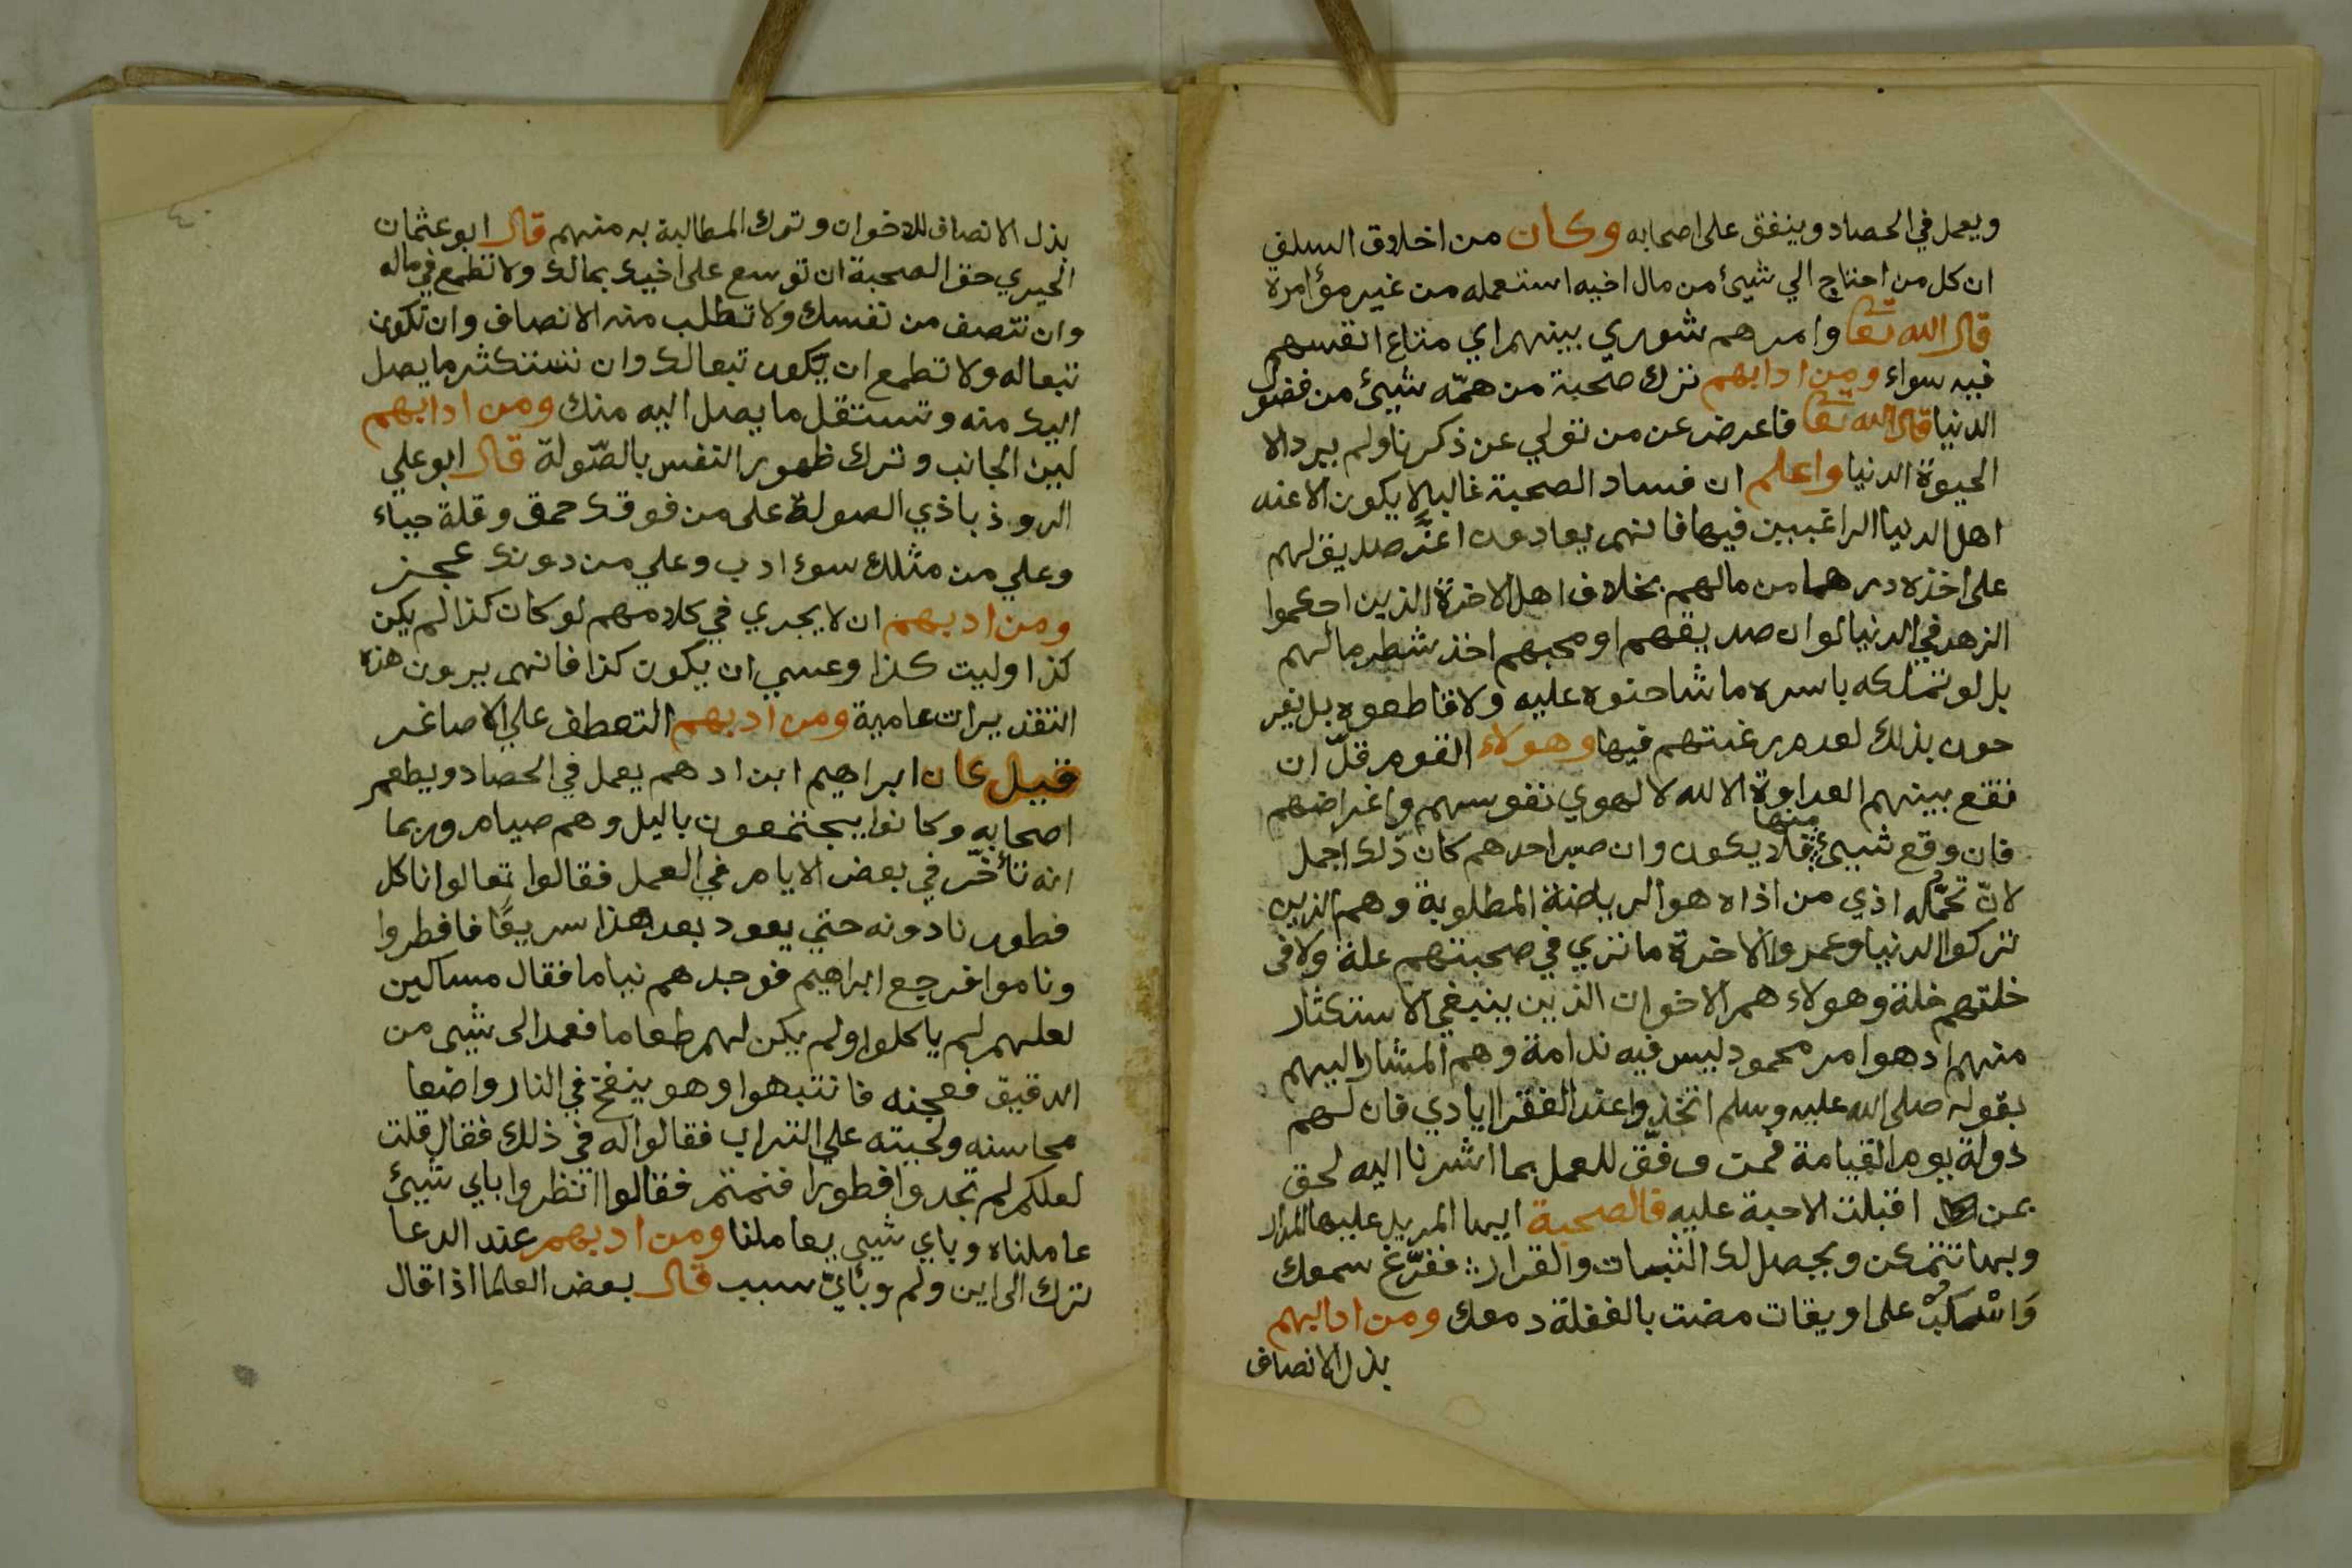 ويعمل في الحصاد وينفق على اصحابه وكان من اخلاق السلف
ان كل من احتاج الي شيئ من مال اخيه استعمله من غير مؤامرة
قال الله تعا وامرهم شوري بينهم اي متاع انفسهم
فيه سواء ومن ادابهم ترك صحبة من همّه شيئ من فضول
الدنيا قال الله تعا فاعرض عن من تولي عن ذكرنا ولم يرد الا
الحيوة الدنيا واعلم ان فساد الصحبة غالبا لا يكون الا عند
اهل الدنيا الراغبين فيها فانهم يعادون اعزّ صديق لهم
على اخذه درهما من مالهم بخلاف اهل الاخرة الذين احكموا
الزهد في الدنيا لو ان صديقهم او محبهم اخذ شطر مالهم
بل لو تملكه باسره ما شاحنوه عليه ولا قاطعوه بل يفر
حون بذلك لعدم رغبتهم فيها وهولاء القوم قلّ ان
تقع بينهم العداوة الا لله لا لهوي نفوسهم واغراضهم
فان وقع شيئ منها فلا يكون وان صبر احدهم كان ذلك اجمل
لانّ تحمّله اذي من اذاه هو الرياضة المطلوبة وهم الذين
تركوا الدنيا وعمروا الاخرة ما تري في صحبتهم علة ولا في
خلتهم خلة وهولاء هم الاخوان الذين ينبغي الاستكثار
منهم اذ هو امر محمود ليس فيه ندامة وهم المشار اليهم
بقوله صلى الله عليه وسلم اتخذوا عند الفقرا ايادي فان لهم
دولة يوم القيامة فمن وفّق للعمل بما اشرنا اليه لحق
بمن اقبلت الاحبة عليه فالصحبة ايها المريد عليها المدار
وبها تتمكن ويحصل لك الثبات والقرار ؞ ففرّغ سمعك
وَاسْكبْ على اويقات مضت بالغفلة دمعك ومن ادابهم
بذل الانصاف
بذل الانصاف للاخوان وترك المطالبة به منهم قال ابو عثمان
الحيري حق الصحبة ان توسع على اخيك بمالك ولا تطمع في ماله
وان تنصف من نفسك ولا تطلب منه الانصاف وان تكون
تبعا له ولا تطمع ان يكون تبعا لك وان تستكثر ما يصل
اليك منه وتستقل ما يصل اليه منك ومن ادابهم
لين الجانب وترك ظهور النفس بالصّولة قال ابو علي
الروذباذي الصولة على من فوقك حمق وقلة حياء
وعلي من مثلك سوء ادب وعلي من دونك عجز
ومن ادبهم ان لا يجري في كلامهم لو كان كذا لم يكن
كذا وليت كذا وعسي ان يكون كذا فانهم يرون هذه
التقديرات عامية ومن ادبهم التعطف علي الاصاغر
قيل كان ابراهيم ابن ادهم يعمل في الحصاد ويطعم
اصحابه وكانوا يجتمعون باليل وهم صيام وربما
انه تأخّر في بعض الايام في العمل فقالوا تعالوا ناكل
فطورنا دونه حتي يعود بعد هذا سريعًا فافطروا
وناموا فرجع ابراهيم فوجدهم نياما فقال مساكين
لعلهم لم ياكلوا ولم يكن لهم طعاما فعمد الى شيى من
الدقيق فعجنه فانتبهوا وهو ينفخ في النار واضعا
محاسنه ولحيته علي التراب فقالوا له في ذلك فقال قلت
لعلكم لم تجدوا فطورا فنمتم فقالوا انظروا باي شيئ
عاملناه وباي شيى يعاملنا ومن ادبهم عند الدعا
ترك الى اين ولم وبأيّ سبب قال بعض العلما اذا قال